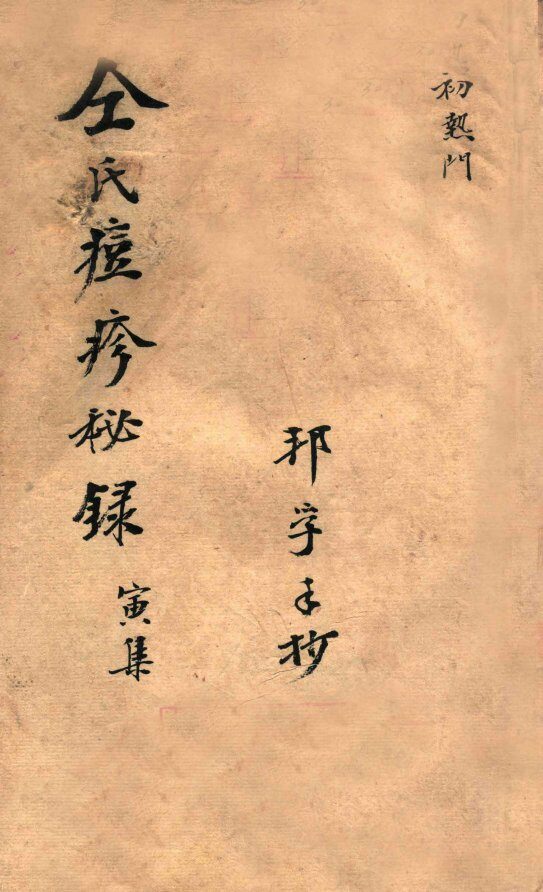 初熱門
邦孚手抄
仝氏痘疹秘録
寅集